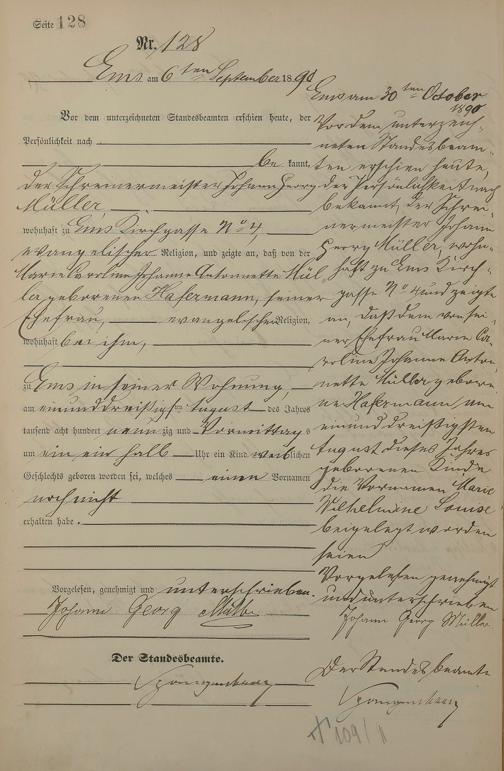 Seite 128
Nr. 128
Ems am 6ten September 1890
Vor dem unterzeichneten Standesbeamten erschien heute, der
Persönlichkeit nach
bekannt,
der Schreinermeister Johann Georg
Müller
wohnhaft zu Ems Kirchgasse No 4,
evangelischer Religion, und zeigte an, daß von der
Marie Caroline Johanne Antonnette Mül
ler geborenen Hafermann, seiner
Ehefrau, evangelischer Religion,
wohnhaft bei ihm,
zu Ems in seiner Wohnung,
am einunddreißigsten August des Jahres
tausend acht hundert neunzig und Vormittags
um ein ein halb Uhr ein Kind weiblichen
Geschlechts geboren worden sei, welches einen Vornamen
noch nicht
erhalten habe.
Vorgelesen, genehmigt und unterschrieben.
Johann Georg Müller
Der Standesbeamte.
Ems am 30ten October
1890
Vor dem unterzeich-
neten Standesbeam-
ten erschien heute,
der Persönlichkeit nach
bekannt, der Schrei
nermeister Johann
Georg Müller, wohn-
haft zu Ems Kirch-
gasse No 4 und zeigte
an, daß dem von sei-
ner Ehefrau Marie Ca
roline Johanne Anton
nette Müller gebore
ne Hafermann, am
einunddreißigsten
August dieses Jahres
geborenen Kinde
die Vornamen Marie
Wilhelmine Louise
beigelegt worden
seien
Vorgelesen genehmigt
und unterschrieben
Johann Georg Müller
Der Standesbeamte
109/